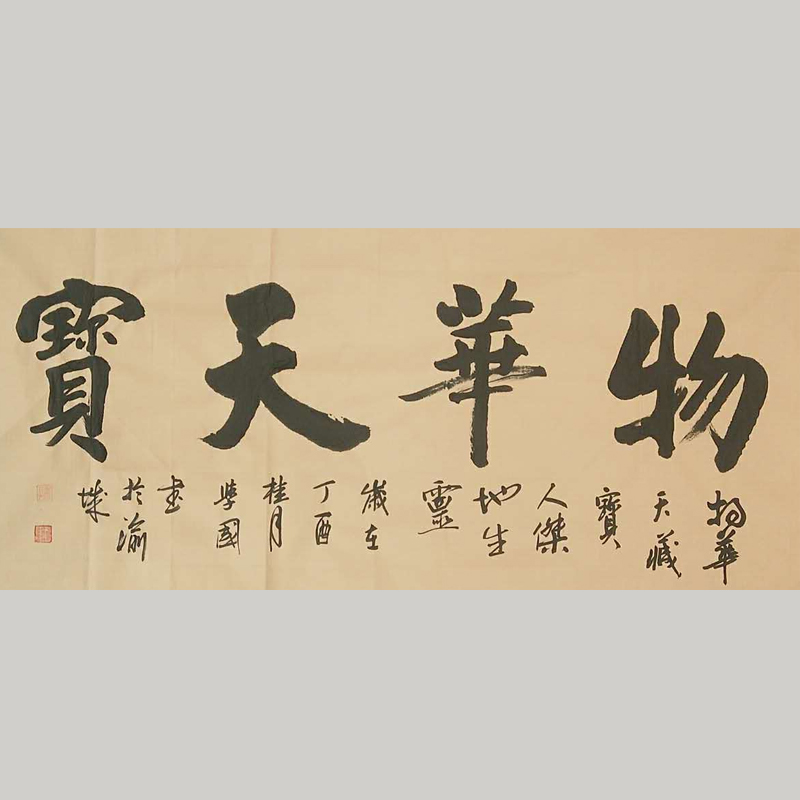 物華天寶
物華
天藏
寶
人傑
地生
靈
歲在
丁酉
桂月
學國
書
於渝
城